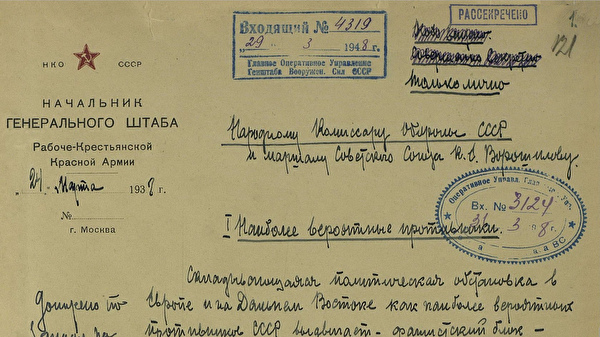 РАССЕКРЕЧЕНО
1.
121
Входящий № 4319
"29" 3 1948 г.
Главное Оперативное Управление
Генштаба Вооружен. Сил СССР
только лично
НКО СССР
НАЧАЛЬНИК
ГЕНЕРАЛЬНОГО ШТАБА
Рабоче-Крестьянской
Красной Армии
"24" Марта 1938 г.
№
г. Москва
Народному Комиссару Обороны СССР
и маршалу Советского Союза К.Е. Ворошилову.
Оперативное Управ.
Вх. № 3124
31 3 8 г.
I Наиболее вероятные противники.
Складывающаяся политическая обстановка в
Европе и на Дальнем Востоке как наиболее вероятных
противников СССР выдвигает - фашистский блок -
Доложено